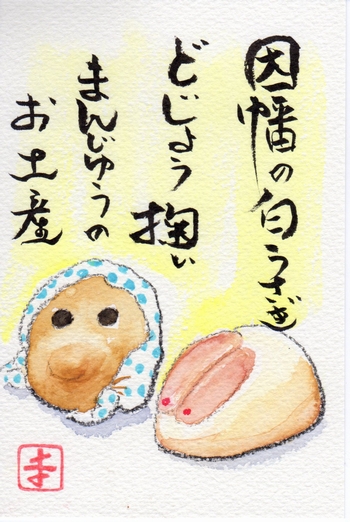 因幡の白うさぎ
どじょう掬い
まんじゅうの
お土産